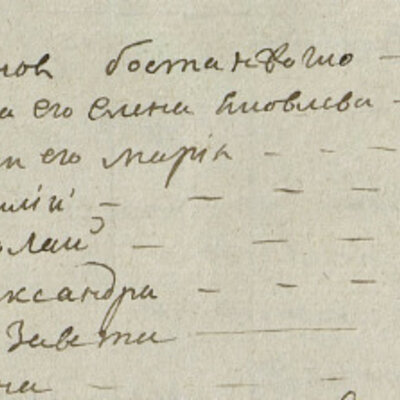 нов бостанжогло —
а его елена яковлева -
и его марія - - -
илій - — - —
олай — — —
ександра - - —
Завета
на - - -